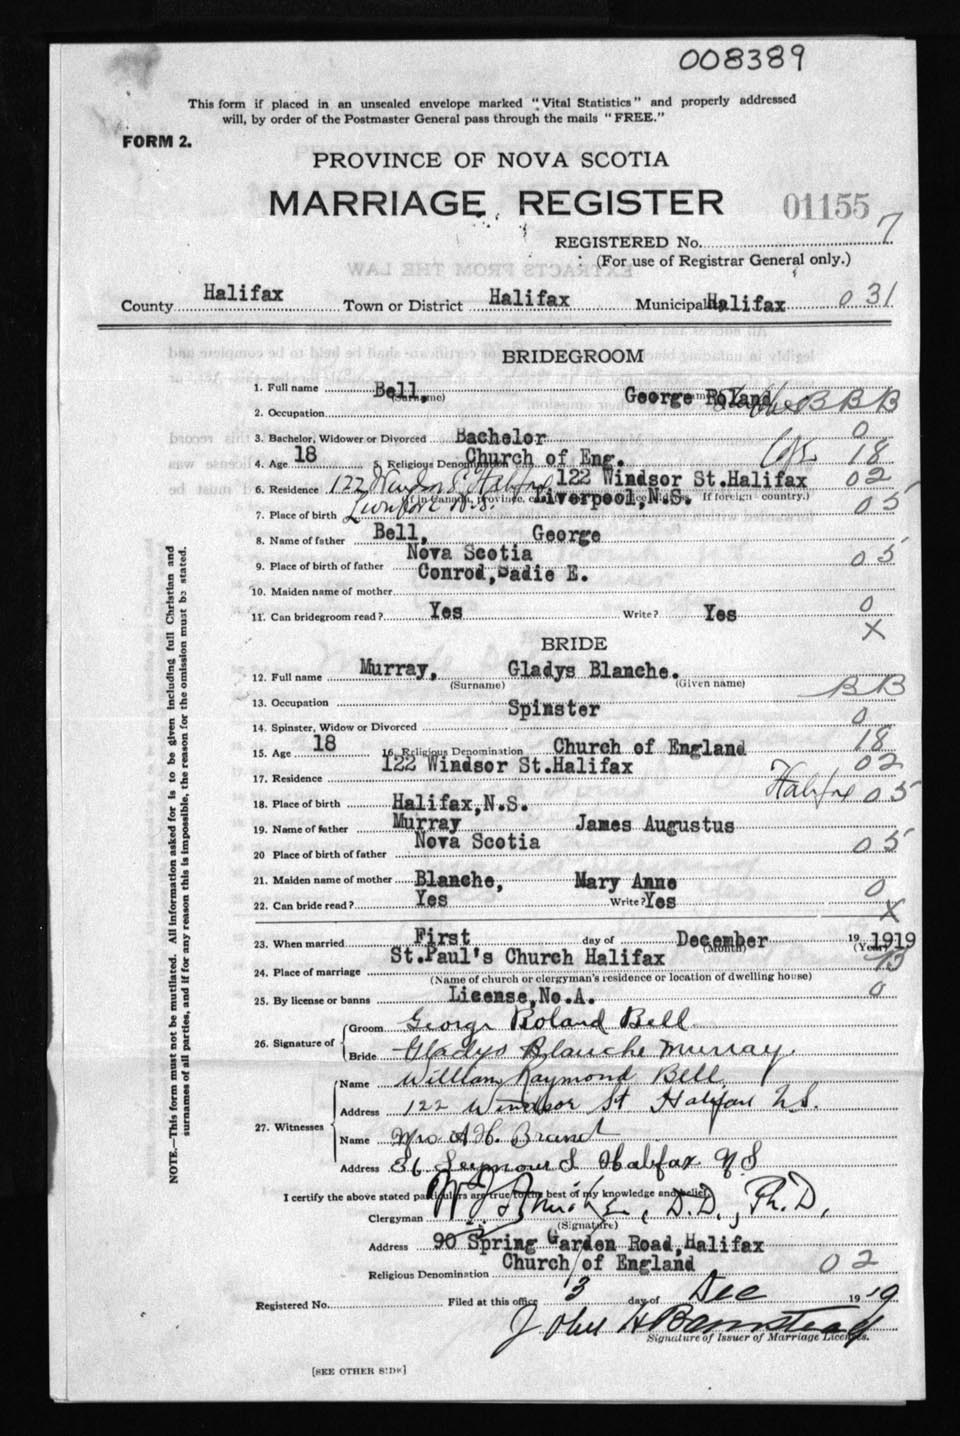 008389
This form if placed in an unsealed envelope marked "Vital Statistics" and properly addressed
will, by order of the Postmaster General pass through the mails "FREE."
FORM 2.
PROVINCE OF NOVA SCOTIA
MARRIAGE REGISTER 01155
REGISTERED No. 7
(For use of Registrar General only.)
County Halifax Town or District Halifax Municipality Halifax 031
BRIDEGROOM
1. Full name Bell, George Roland
(Surname)
2. Occupation BBB
3. Bachelor, Widower or Divorced Bachelor 0
4. Age 18 5. Religious Denomination Church of Eng. C of E 18
6. Residence 122 Windsor St Halifax 122 Windsor St.Halifax 02
7. Place of birth Liverpool,N.S. If foreign country.) 05
8. Name of father Bell, George
9. Place of birth of father Nova Scotia 05
10. Maiden name of mother Conrod,Sadie E.
11. Can bridegroom read? Yes Write? Yes 0
X
BRIDE
12. Full name Murray, Gladys Blanche.
(Surname) (Given name)
13. Occupation BB
14. Spinster, Widow or Divorced Spinster 0
15. Age 18 16. Religious Denomination Church of England 18
17. Residence 122 Windsor St.Halifax 02
18. Place of birth Halifax,N.S. Halifax 05
19. Name of father Murray James Augustus
20 Place of birth of father Nova Scotia 05
21. Maiden name of mother Blanche, Mary Anne
22. Can bride read? Yes Write? Yes 0
X
23. When married First day of December 19 1919
(Month) (Year)
24. Place of marriage St.Paul's Church Halifax
(Name of church or clergyman's residence or location of dwelling house)
25. By license or banns License,No.A. 0
26. Signature of Groom George Roland Bell
Bride Gladys Blanche Murray.
27. Witnesses Name William Raymond Bell
Address 122 Windsor St Halifax N.S.
Name Mrs A H.
Address 36 Seymour S Halifax N S
I certify the above stated particulars are true to the best of my knowledge and belief.
Clergyman D.D., Ph.D,
(Signature)
Address 90 Spring Garden Road,Halifax
Religious Denomination Church of England 02
Registered No. Filed at this office 3 day of Dec 19 19
John H
Signature of Issuer of Marriage Licenses.
[SEE OTHER SIDE]
NOTE.—This form must not be mutilated. All information asked for is to be given including full Christian and
surnames of all parties, and if for any reason this is impossible, the reason for the omission must be stated.